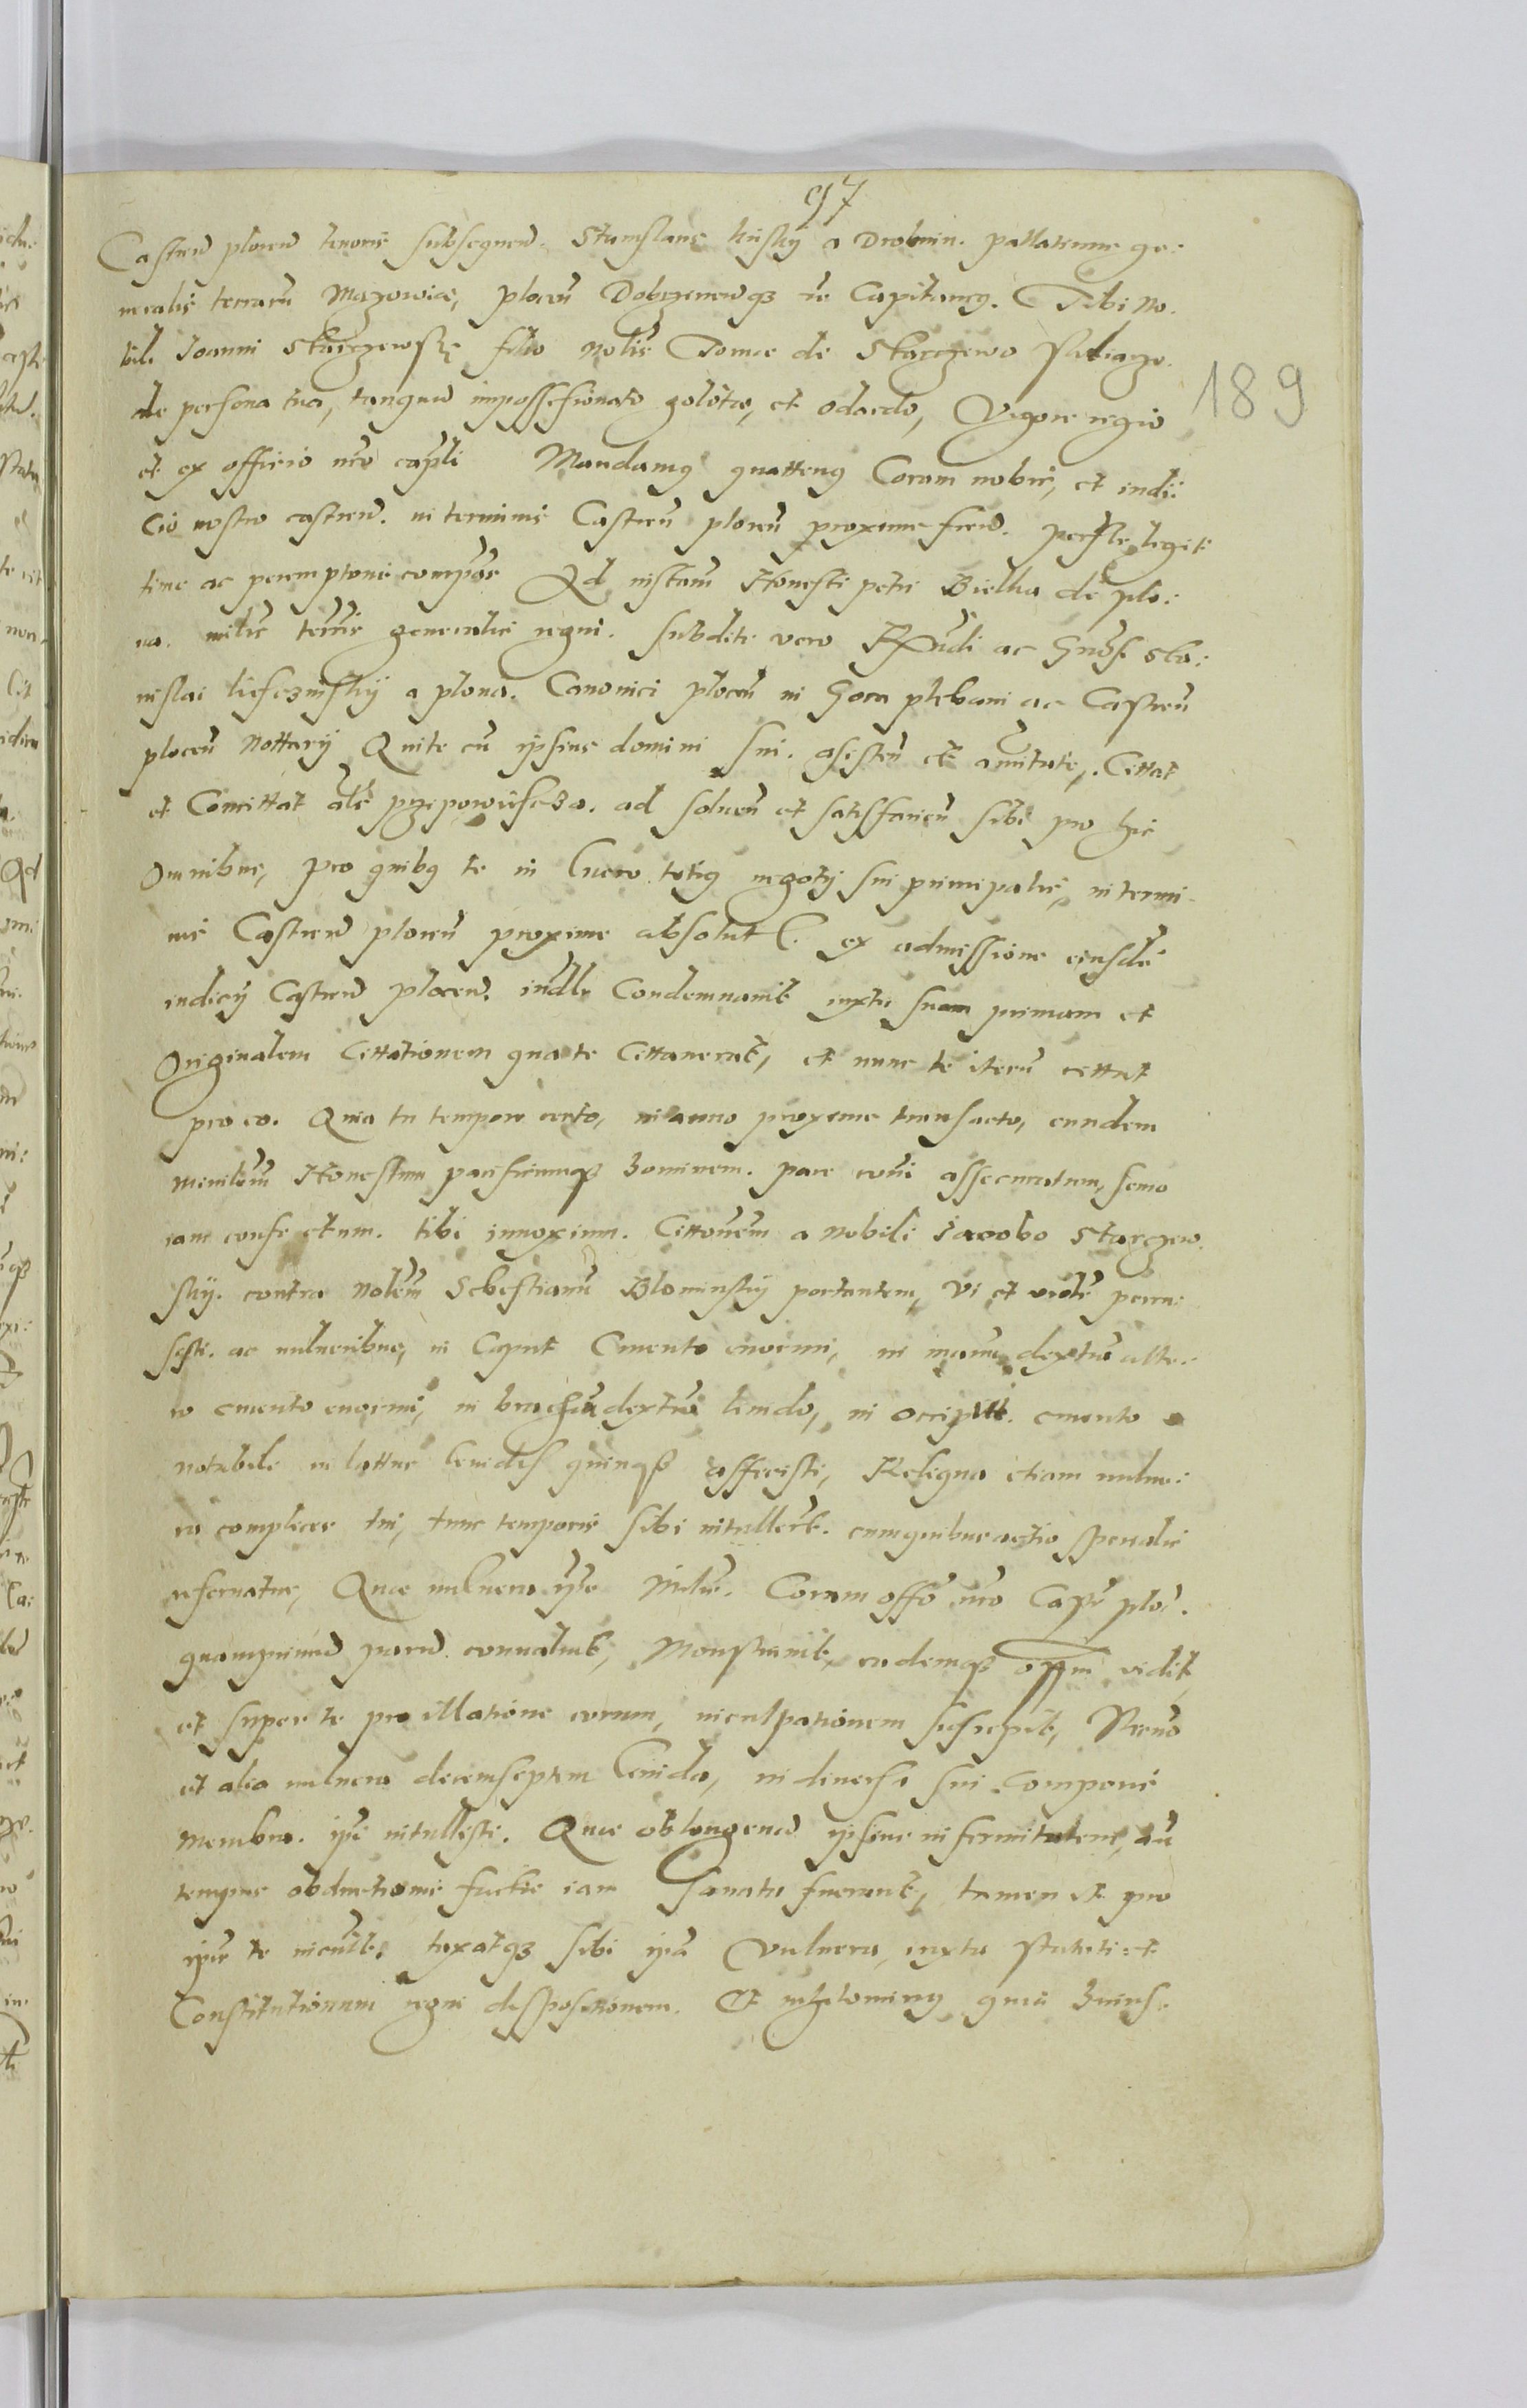 97
189
Castren plocen tenoris subsequen. Stanislaus kriskij a Drobnin. pallatinus ge:
neralis terraru Mazowiae, plocen Dobrzenenq3 ac Capitaneus. Tibi No.
bili Joanni Starczewski filio nolis Tomae de Starczewo
de persona tua, tanquam impossesionato golotae, et odardo, Vigore regio
et ex officio nro capli Mandamus quattenus Coram nobis, et iudi:
cio nostro castren. in terminis Castren plocen proxime fien. perstr legit
time ac peremptorie compas Ad instam Honesti petri Bielka de plo:
na. milis terris generalis regni. subdite vero Rndi ac Gnosi Sta:
nislai liesczinskij a plona. Canonici plocen in Gora plebani ac Castren
plocen Nottarij Qui te cu ipsius domini sui. asisten et avitate, Cittat
et Concittat als przipowiescza. ad soluen et satisfacien sibi pro his
Omnibus, pro quibus te in lucro totius negotij sui principalis, in termi
nis Castren plocen proxime absolut. ex admissione eiusde
iudicij Castren plocen. indl Condemnavit iuxta suam primam et
Originalem Cittationem qua te Cittaverat, et nunc te iteru cittat
pro eo. Quia tu tempore certo, in anno proxime transacto, eundem
Minislem Honestum pacificumq3 hominem. pace coni assecuratum, servo
iam confectum. tibi innoxium. Cittonem a Nobili Jacobo Starczew
skij. contra Nolem Sebestianu Blominskij portantem, Vi et violr percu:
sisti. ac vulneribus, in Caput Cruento enormi, in manu dextra alte:
ro cruento enormi, in brachiu dextru livido, in occiput. cruento
notabile in lattus lividis quinq3 affecisti, Reliqua etiam vulne:
ra complices tui, tunc temporis sibi intullert. cum quibus actio spetialis
reservatur, Quae vulnera ipse Mils. Coram offo nro Castr ploc.
quamprimu paru convaluit, Monstravit, eademq3 offm vidit,
et super te pro illatione eorum, inculpationem suscepit, Necno
et alia vulnera decemseptem livida, in diversa sui Comporis
membra. ipse intullisti. Quae ob longevam ipsius infermitatem, au
tempus obductionis factae iam sanata fuerunt, tamen et pro
ipsis te incult, taxatq3 sibi ipsa vulnera, iuxta statuti et
Constitutionum regni dispositionem. Et nihilominus quia huius